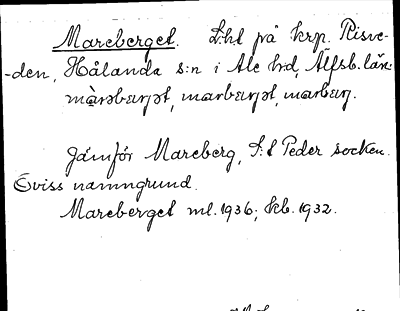 Mareberget. L:ht på krp. Risve-
-den, Hålanda s:n i Ale hd, Älfsb. län:
màrəbærjət, marbærjət, marbærj.
Jämför Mareberg, S:t Peder socken.
Oviss namngrund.
Mareberget ml. 1936; kb. 1932.